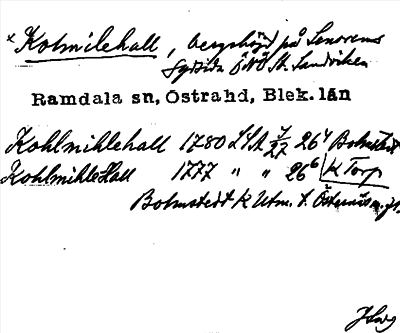 * Kolmilehall, bergshöjd på Senorens
Sydsida ÖNÖ St. Sandviken
Ramdala sn, Östrahd, Blek. län
Kohlmihlehall 1780 LSA 7/27 26⁴ Bohmstedt
Kohlmihlehall 1777 " " 26⁶ K Torp
Bohmstedt K Utm. t.